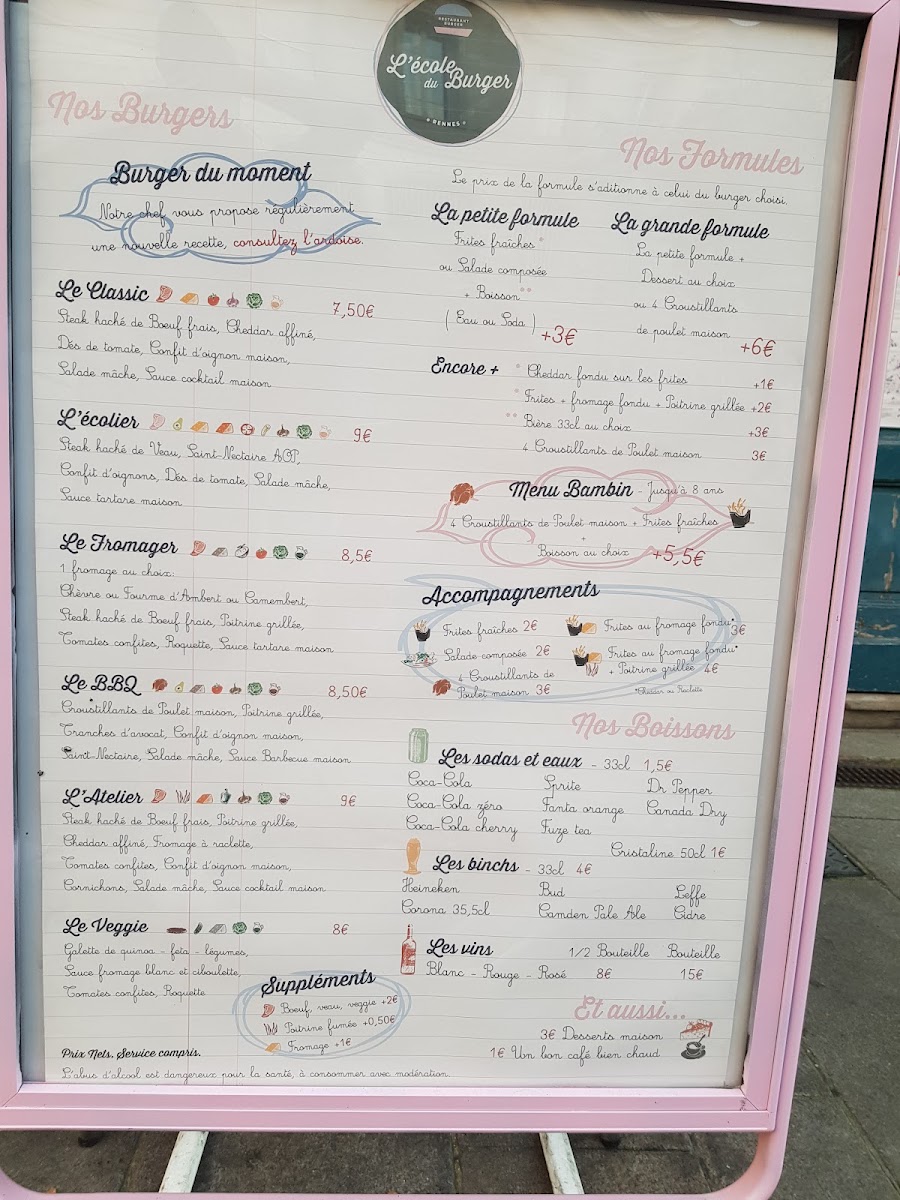 RESTAURANT
BURGER
L'école
du Burger
RENNES
Nos Burgers
Burger du moment
Notre chef vous propose régulièrement
une nouvelle recette, consultez l'ardoise.
Le Classic 7,50€
Steak haché de Boeuf frais, Cheddar affiné,
Dés de tomate, Confit d'oignon maison,
Salade mâche, Sauce cocktail maison
L'écolier 9€
Steak haché de Veau, Saint-Nectaire AOP,
Confit d'oignons, Dés de tomate, Salade mâche,
Sauce tartare maison
Le Fromager 8,5€
1 fromage au choix:
Chèvre ou Fourme d'Ambert ou Camembert,
Steak haché de Boeuf frais, Poitrine grillée,
Tomates confites, Roquette, Sauce tartare maison
Le BBQ 8,50€
Croustillants de Poulet maison, Poitrine grillée,
Tranches d'avocat, Confit d'oignon maison,
Saint-Nectaire, Salade mâche, Sauce Barbecue maison
L'Atelier 9€
Steak haché de Boeuf frais, Poitrine grillée,
Cheddar affiné, Fromage à raclette,
Tomates confites, Confit d'oignon maison,
Cornichons, Salade mâche, Sauce cocktail maison
Le Veggie 8€
Galette de quinoa - feta - légumes,
Sauce fromage blanc et ciboulette,
Tomates confites, Roquette
Suppléments
Boeuf, veau, veggie +2€
Poitrine fumée +0,50€
Fromage +1€
Prix Nets, Service compris.
L'abus d'alcool est dangereux pour la santé, à consommer avec modération
Nos Formules
Le prix de la formule s'aditionne à celui du burger choisi.
La petite formule
Frites fraîches*
ou Salade composée
+ Boisson**
( Eau ou Soda ) +3€
La grande formule
La petite formule +
Dessert au choix
ou 4 Croustillants
de poulet maison +6€
Encore + * Cheddar fondu sur les frites +1€
* Frites + fromage fondu + Poitrine grillée +2€
** Bière 33cl au choix +3€
4 Croustillants de Poulet maison 3€
Menu Bambin - Jusqu'à 8 ans
4 Croustillants de Poulet maison + Frites fraîches
+
Boisson au choix +5,5€
Accompagnements
Frites fraîches 2€
Salade composée 2€
4 Croustillants de
Poulet maison 3€
Frites au fromage fondu* 3€
Frites au fromage fondu*
+ Poitrine grillée 4€
*Cheddar ou Raclette
Nos Boissons
Les sodas et eaux - 33cl 1,5€
Coca-Cola Sprite Dr Pepper
Coca-Cola zéro Fanta orange Canada Dry
Coca-Cola cherry Fuze tea
Cristaline 50cl 1€
Les binchs - 33cl 4€
Heineken Bud Leffe
Corona 35,5cl Camden Pale Ale Cidre
Les vins 1/2 Bouteille Bouteille
Blanc - Rouge - Rosé 8€ 15€
Et aussi...
3€ Desserts maison
1€ Un bon café bien chaud